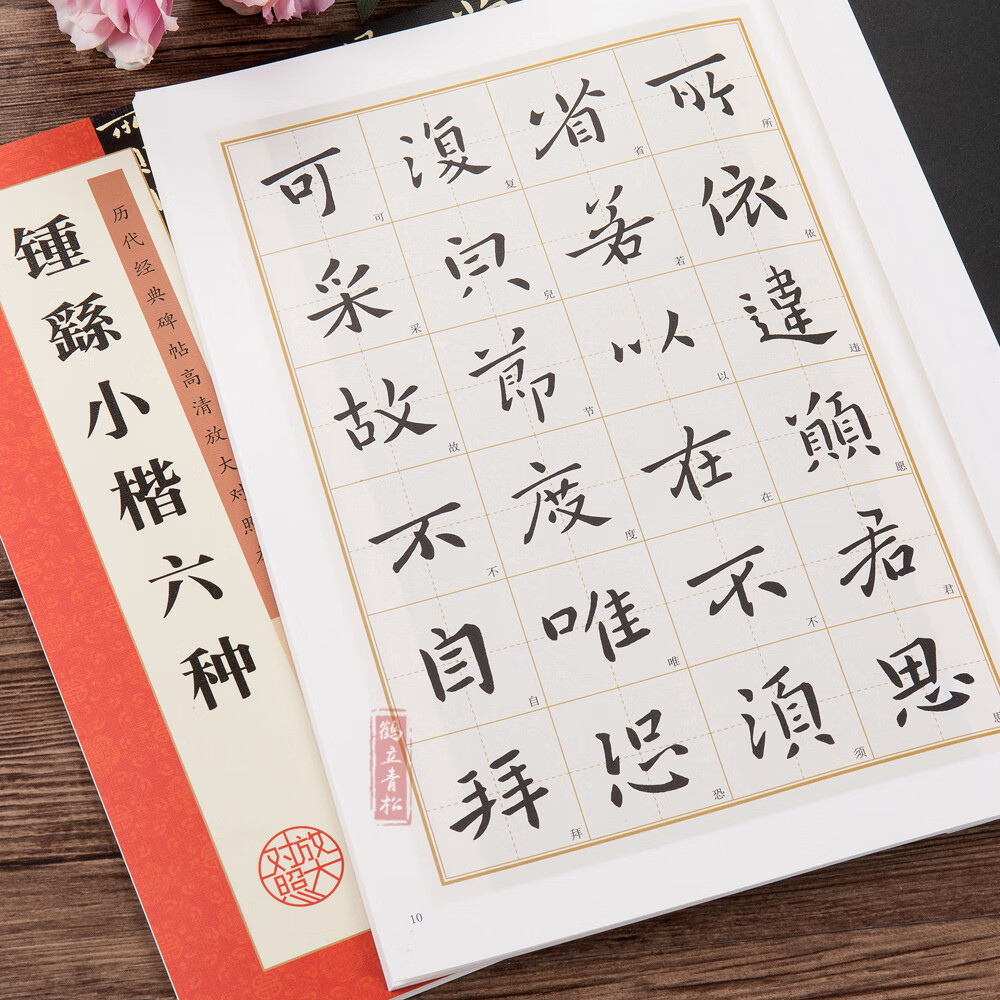 锺繇小楷六种
历代经典碑帖高清放大对照
放大对照
所依違願君思
所依违愿君思
省若以在不須
省若以在不须
復皃節度唯恐
复兒节度唯恐
可采故不自拜
可采故不自拜
鶴立青松
10